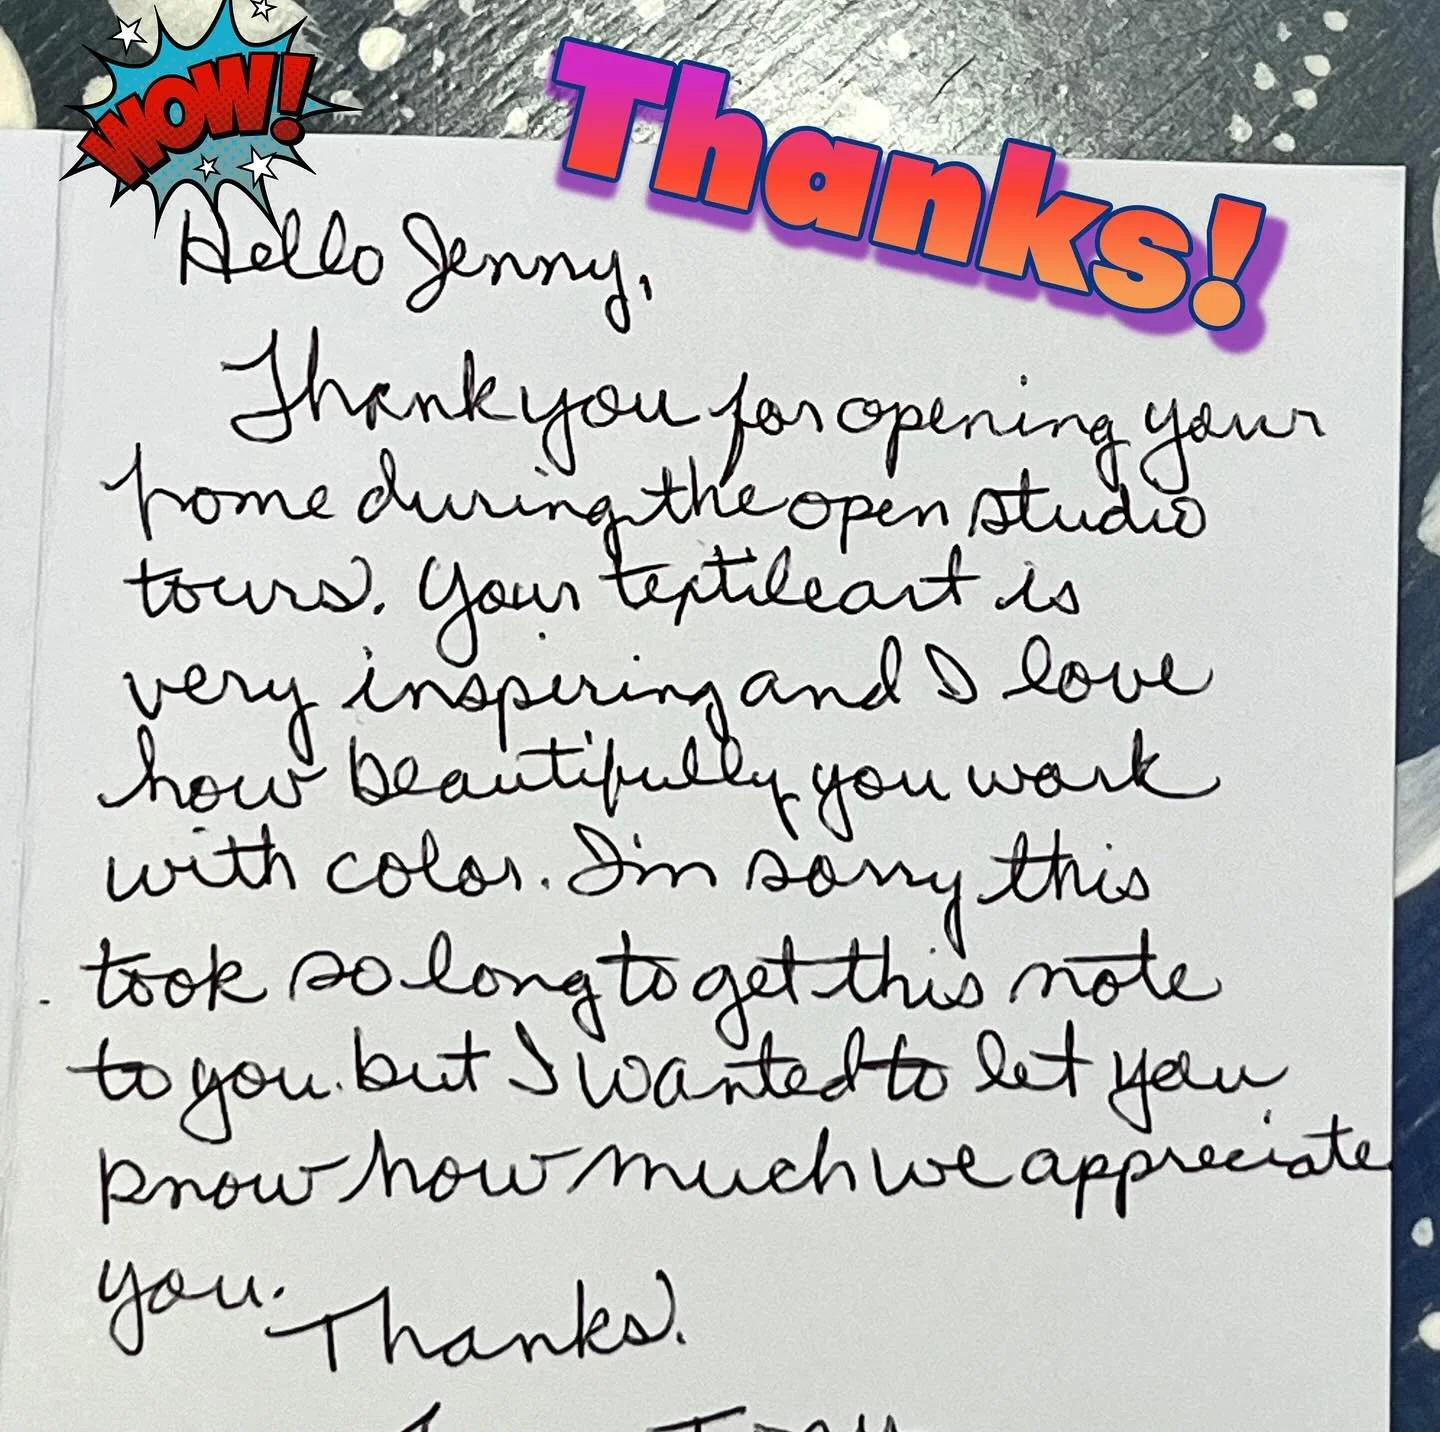 WOW!
Thanks!
Hello Jenny,
Thank you for opening your
home during the open studio
tours. Your textile art is
very inspiring and I love
how beautifully you work
with color. I'm sorry this
took so long to get this note
to you. but I wanted to let you
know how much we appreciate
you.
Thanks.